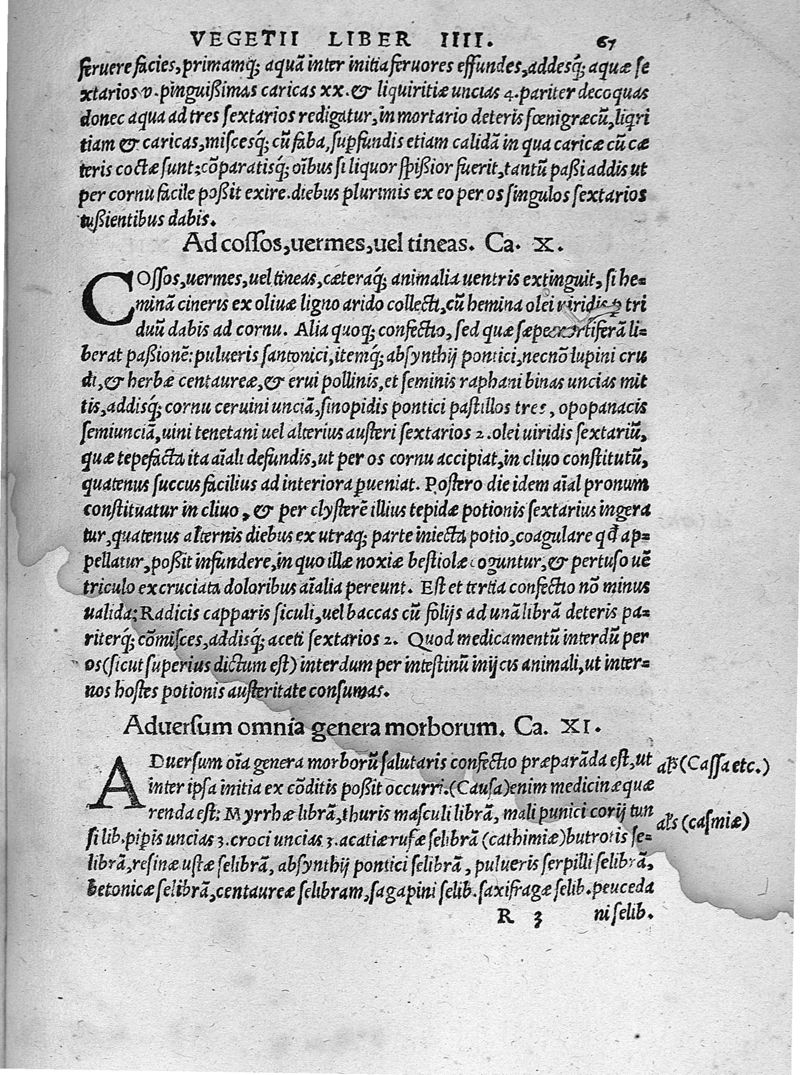 VEGETII LIBER IIII. 67
feruere facies, primamq; aquã inter initia feruores effundes, addesq; aquæ se
xtarios v. pinguißimas caricas xx. & liquiritiæ uncias 4. pariter decoquas
donec aqua ad tres sextarios redigatur, in mortario deteris fœnigræcũ, liqri
tiam & caricas, miscesq; cũ faba, supfundis etiam calidã in qua caricæ cũ cæ
teris coctæ sunt: cõparatisq; oĩbus si liquor spißior fuerit, tantũ paßi addis ut
per cornu facile poßit exire. diebus plurimis ex eo per os singulos sextarios
tußientibus dabis.
Ad cossos, uermes, uel tineas. Ca. X.
COssos, uermes, uel tineas, cæteraq; animalia uentris extinguit, si he=
minã cineris ex oliuæ ligno arido collecti, cũ hemina olei uiridis p tri
duũ dabis ad cornu. Alia quoq; confectio, sed quæ sæpe mortiferã li=
berat paßionẽ: pulueris santonici, itemq; absynthij pontici, necnõ lupini cru
di, & herbæ centaureæ, & erui pollinis, et seminis raphani binas uncias mit
tis, addisq; cornu ceruini unciã, sinopidis pontici pastillos tres, opopanacis
semiunciã, uini tenetani uel alterius austeri sextarios 2. olei uiridis sextariũ,
quæ tepefacta ita aĩali defundis, ut per os cornu accipiat, in cliuo constitutũ,
quatenus succus facilius ad interiora pueniat. Postero die idem aĩal pronum
constituatur in cliuo, & per clysterẽ illius tepidæ potionis sextarius ingera
tur, quatenus alternis diebus ex utraq; parte iniecta potio, coagulare qđ ap=
pellatur, poßit infundere, in quo illæ noxiæ bestiolæ coguntur, & pertuso uẽ
triculo excruciata doloribus aĩalia pereunt. Est et tertia confectio nõ minus
ualida: Radicis capparis siculi, uel baccas cũ folijs ad unã librã deteris pa=
riterq; cõmisces, addisq; aceti sextarios 2. Quod medicamentũ interdũ per
os (sicut superius dictum est) interdum per intestinũ inijcis animali, ut inter=
nos hostes potionis austeritate consumas.
Aduersum omnia genera morborum. Ca. XI.
ADuersum oĩa genera morborũ salutaris confectio præparãda est, ut
inter ipsa initia ex cõditis poßit occurri. (Causa) enim medicinæ quæ
renda est: Myrrhæ librã, thuris masculi librã, mali punici corij tun
si lib. pipis uncias 3. croci uncias 3. acatiæ rufæ selibrã (cathimiæ) butrotis se=
librã, resinæ ustæ selibrã, absynthij pontici selibrã, pulueris serpilli selibrã,
betonicæ selibrã, centaureæ selibram, sagapini selib. saxifragæ selib. peuceda
R 3 ni selib.
al's (Cassa etc.)
al's (casmiæ)